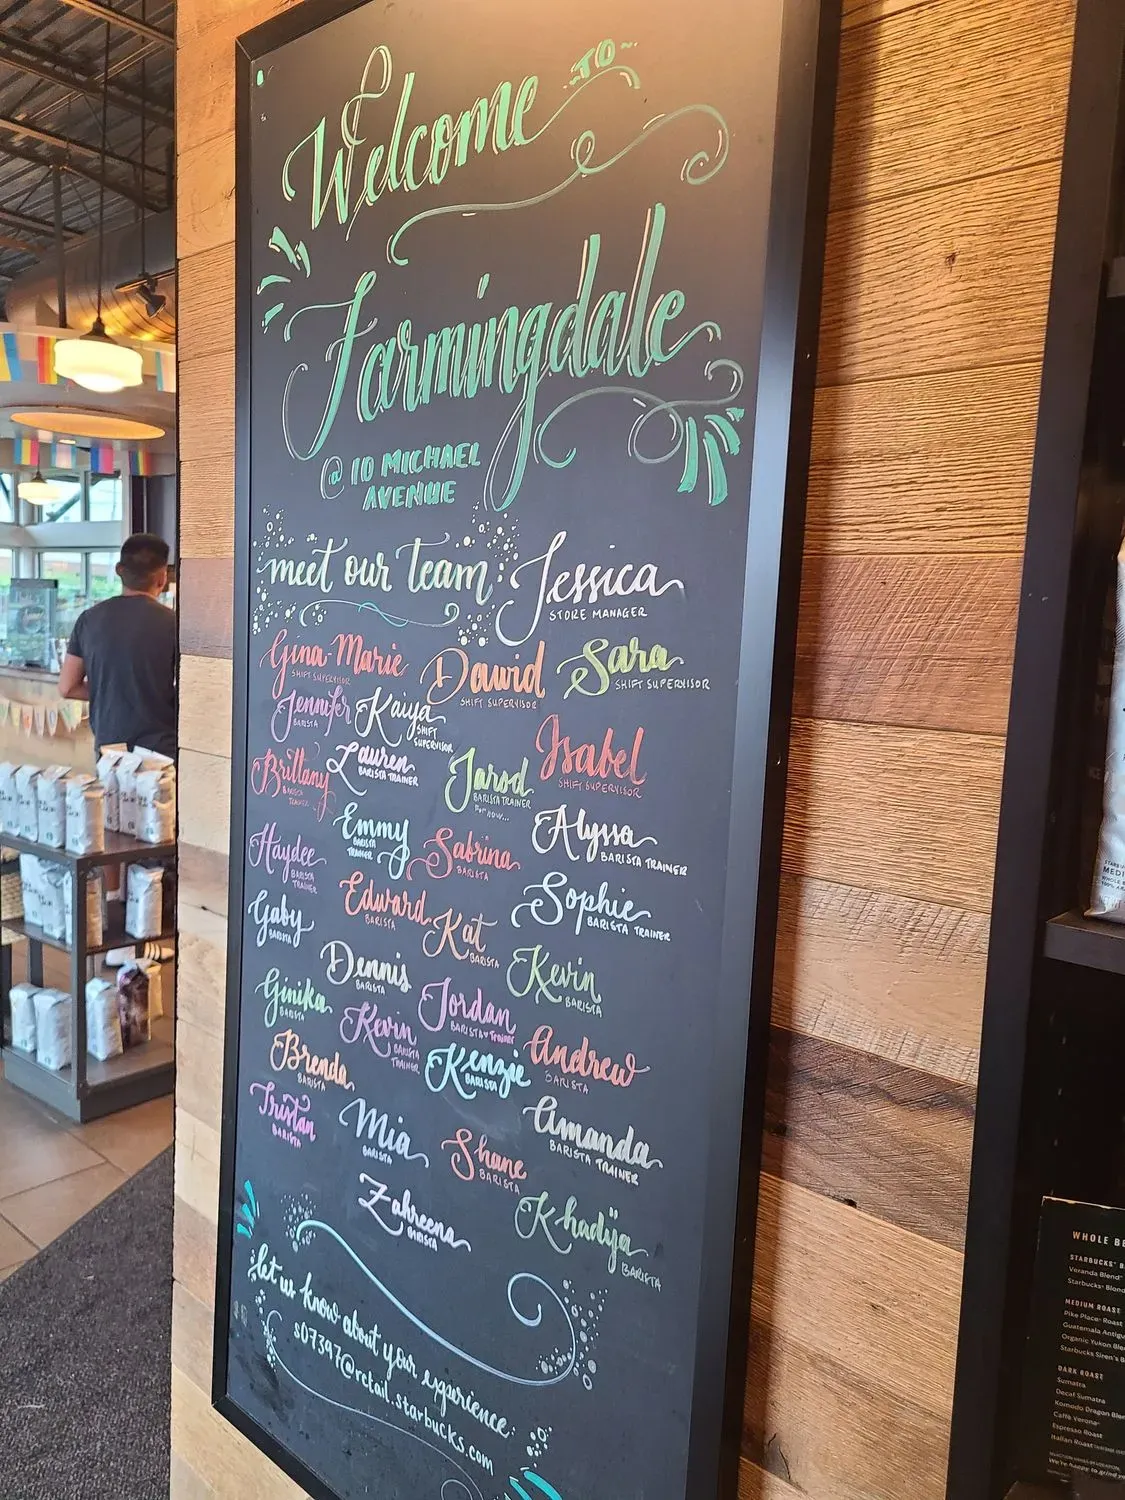 Welcome -TO-
Farmingdale
@ 10 MICHAEL
AVENUE
meet our team:
Jessica
STORE MANAGER
Gina-Marie
SHIFT SUPERVISOR
Dawid
SHIFT SUPERVISOR
Sara
SHIFT SUPERVISOR
Jennifer
BARISTA
Kaiya
SHIFT
SUPERVISOR
Isabel
SHIFT SUPERVISOR
Brittany
BARISTA
TRAINER
Lauren
BARISTA TRAINER
Jarod
BARISTA TRAINER
for now...
Emmy
BARISTA
TRAINER
Sabrina
BARISTA
Alyssa
BARISTA TRAINER
Haydee
BARISTA
TRAINER
Edward
BARISTA
Kat
BARISTA
Sophie
BARISTA TRAINER
Gaby
BARISTA
Dennis
BARISTA
Kevin
BARISTA
Ginika
BARISTA
Kevin
BARISTA
TRAINER
Jordan
BARISTA♥Trainer
Andrew
BARISTA
Brenda
BARISTA
Kenzie
BARISTA
Tristan
BARISTA
Mia
BARISTA
Shane
BARISTA
Amanda
BARISTA TRAINER
Zahreena
BARISTA
Khadija
BARISTA
let us know about your experience:
s07397@retail.starbucks.com
MEDI
WHOLE BE
STARBUCKS® B
Veranda Blend™
Starbucks® Blond
MEDIUM ROAST
Pike Place® Roast
Guatemala Antigu
Organic Yukon Ble
Starbucks Siren's B
DARK ROAST
Sumatra
Decaf Sumatra
Komodo Dragon Blen
Caffè Verona®
Espresso Roast
Italian Roast
We're happy to grind yo